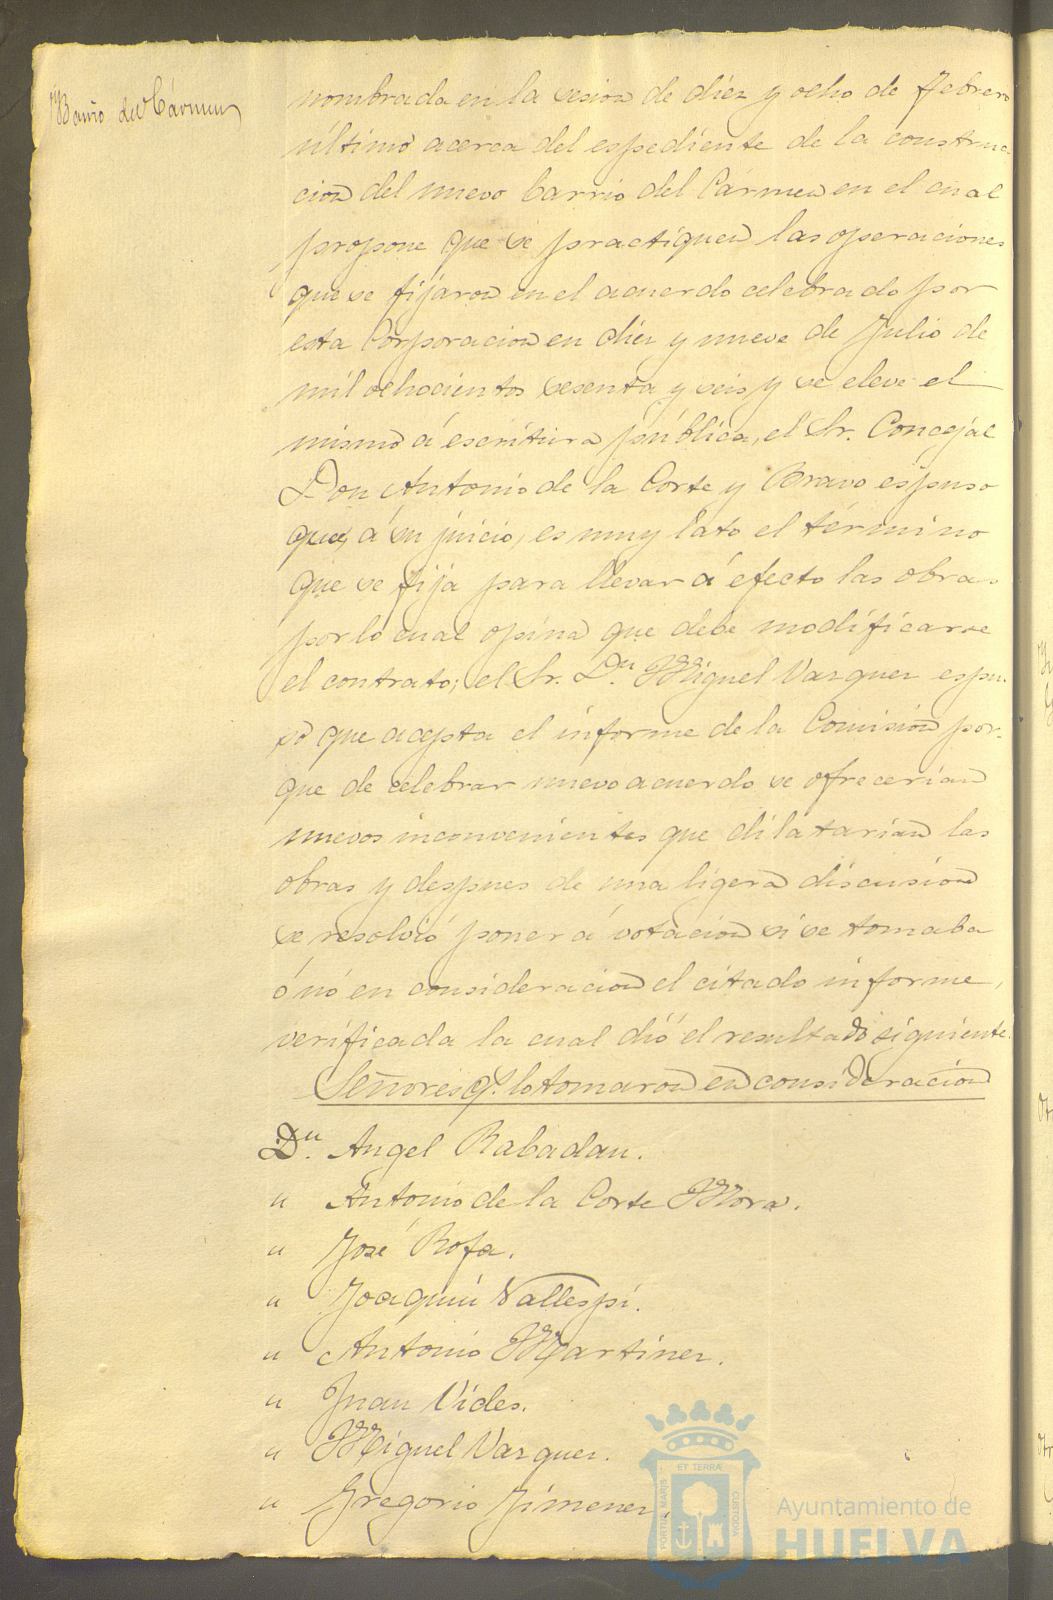 Barrio del Cármen
nombrada en la sesion de diez y ocho de Febrero
último acerca del espediente de la construc-
cion del nuevo barrio del Cármen en el cual
propone que se practiquen las operaciones
que se fijaron en el acuerdo celebrado por
esta Corporacion en diez y nueve de Julio de
mil ochocientos sesenta y seis y se eleve el
mismo á escritura pública, el Sr. Concejal
Don Antonio de la Corte y Bravo espuso
que, á su juicio, es muy lato el término
que se fija para llevar á efecto las obras
por lo cual opina que debe modificarse
el contrato; el Sr. Dn. Miguel Vazquez espu-
so que acepta el informe de la Comision por-
que de celebrar nuevo acuerdo se ofrecerian
nuevos inconvenientes que dilatarian las
obras y despues de una ligera discusion
se resolvió poner á votacion si se tomaba
ó nó en consideracion el citado informe,
verificada la cual dió el resultado siguiente.
Señores q. lo tomaron en consideracion
Dn. Angel Rabadan.
" Antonio de la Corte Mora.
" José Rofa.
" Joaquin Vallespí.
" Antonio Martinez.
" Juan Vides.
" Miguel Vazquez.
" Gregorio Jimenez.
PORTUS MARIS
ET TERRÆ
CUSTODIA
Ayuntamiento de
HUELVA